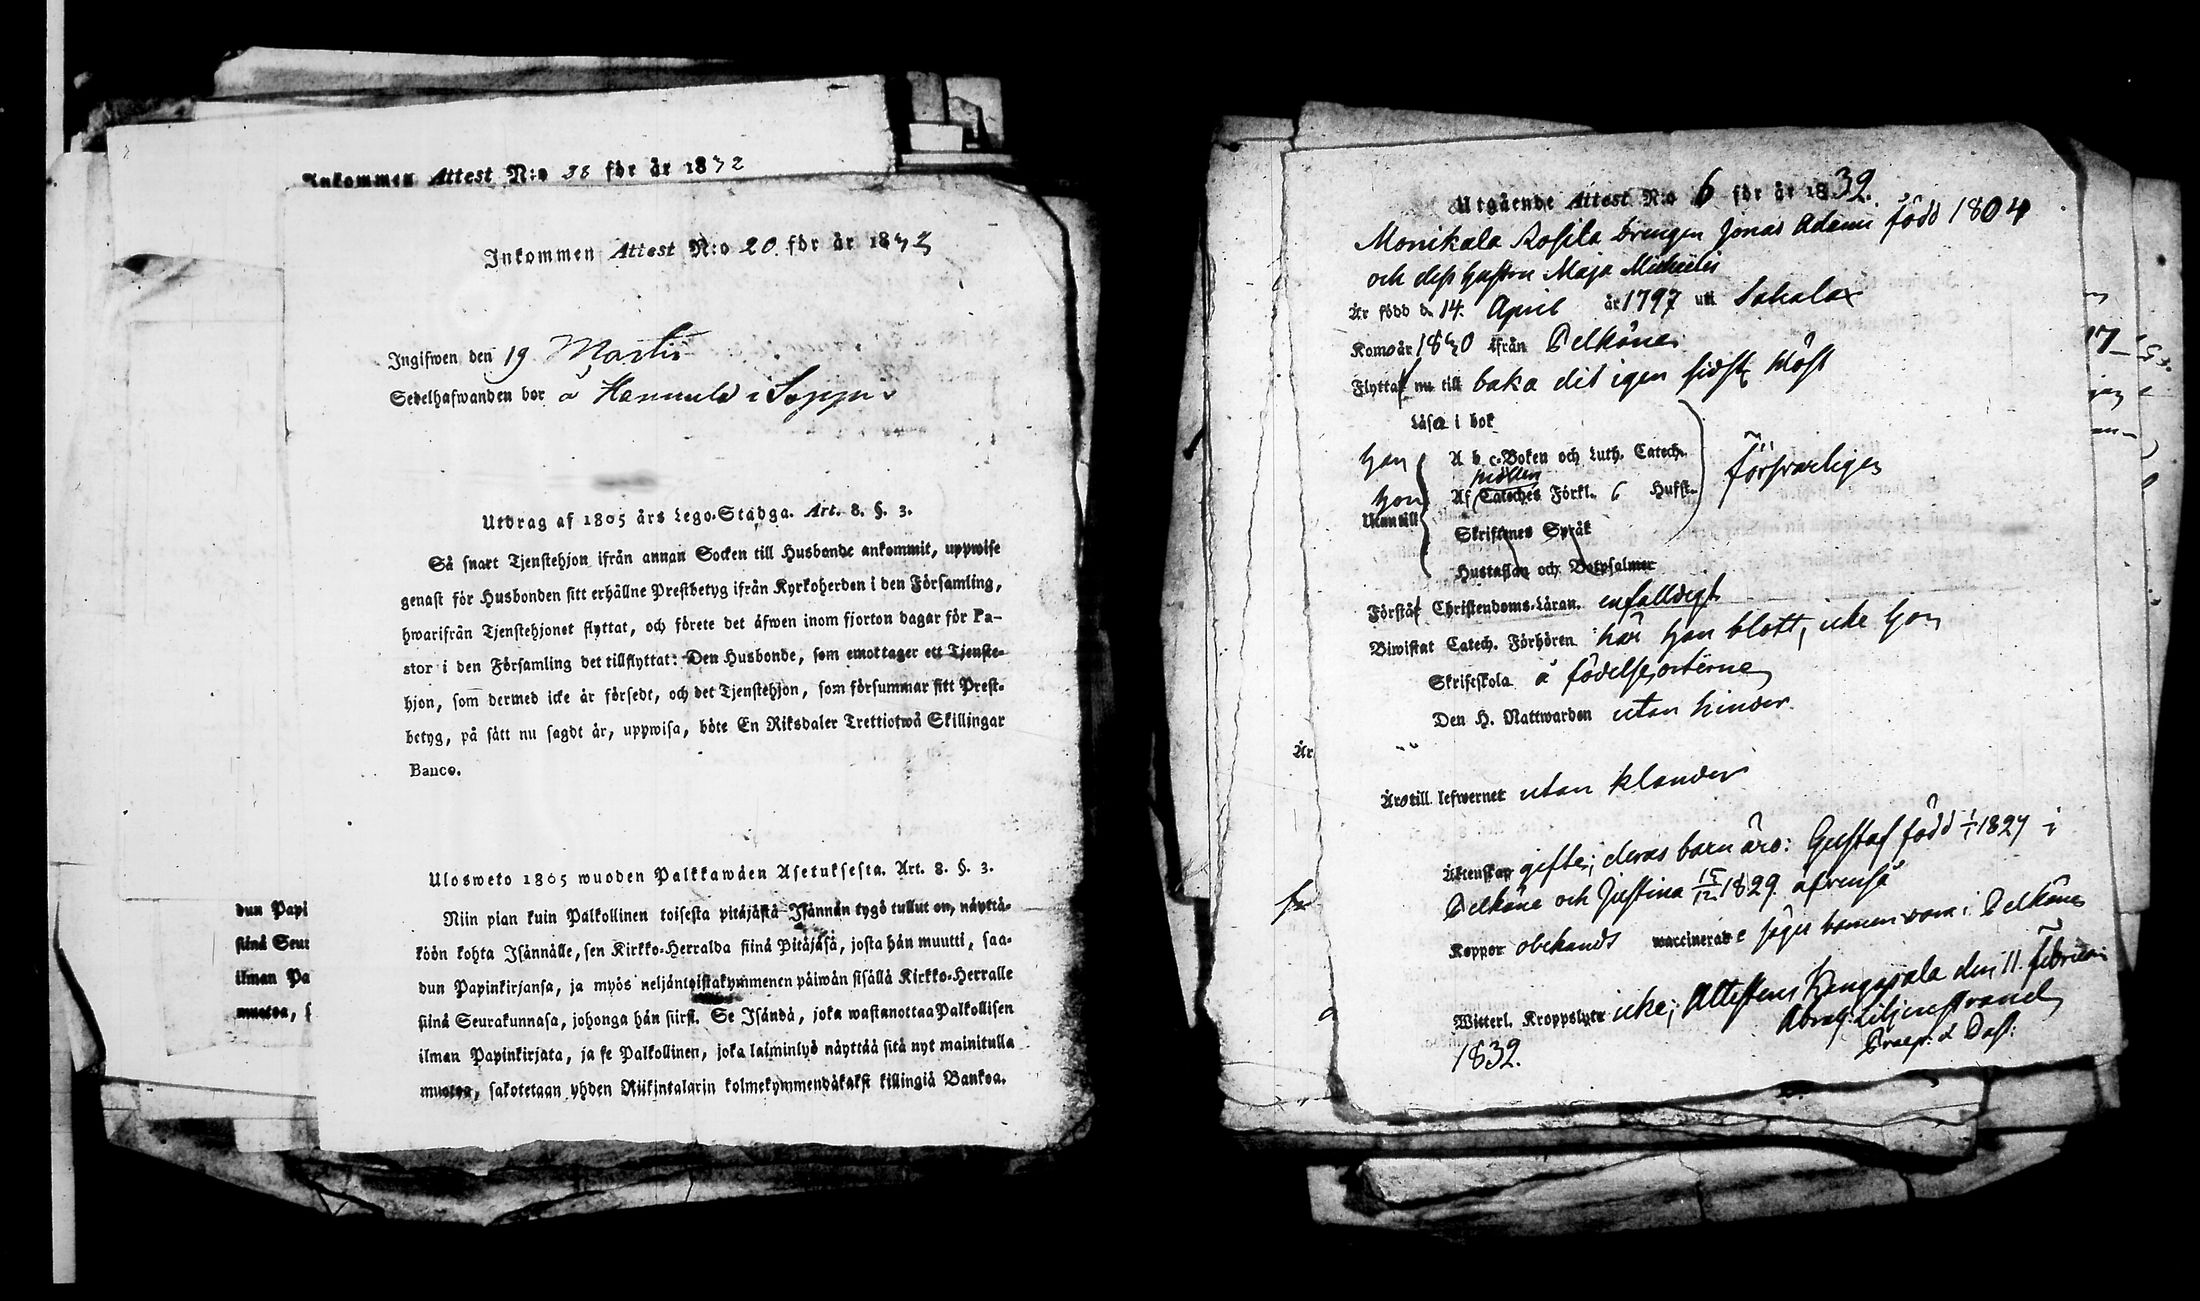 Inkommen Attest N:o 38 för år 1832
Inkommen Attest N:o 20. för år 1833
Ingifwen den 19 Martii
Sedelhafwanden bor å Hannula i Soppi
Utdrag af 1805 års Lego-Stadga. Art. 8. §. 3.
Så snart Tjenstehjon ifrån annan Socken till Husbonde ankommit, uppwise
genast för Husbonden sitt erhållne Prestbetyg ifrån Kyrkoherden i den Församling,
hwarifrån Tjenstehjonet flyttat, och förete det äfwen inom fjorton dagar för Pa-
stor i den Församling det tillflyttat: Den Husbonde, som emottager ett Tjenste-
hjon, som dermed icke är försedt, och det Tjenstehjon, som försummar sitt Prest-
betyg, på sätt nu sagdt är, uppwisa, böte En Riksdaler Trettiotwå Skillingar
Banco.
Ulosweto 1805 wuoden Palkkawäen Asetuksesta. Art. 8. §. 3.
Niin pian kuin Palkollinen toisesta pitäjästä Isännän tygö tullut on, näyttä-
köön kohta Isännälle, sen Kirkko-Herralda siinä Pitäjäsä, josta hän muutti, saa-
dun Papinkirjansa, ja myös neljäntoistakymmenen päiwän sisällä Kirkko-Herralle
siinä Seurakunnasa, johonga hän siirst. Se Isändä, joka wastanottaa Palkollisen
ilman Papinkirjata, ja se Palkollinen, joka laiminlyö näyttää sitä nyt mainitulla
muotoa, sakotetaan yhden Riikintalarin kolmekymmendäkaksi killingiä Bankoa.
dun Papi
siinä Seur
ilman Pa
muotoa, s
Utgående Attest N:o 6 för år 1832.
Monikala Rosila Drengen Jonas Adami född 1804
och dess hustru Maja Michelis
Är född d. 14. April år 1797 uti Sahalax
Kom år 1830 ifrån Pelkäne
Flyttat nu till baka dit igen sidstl. Höst
Läsa i bok
han A b c-Boken och Luth. Catech.
hon Af Cateches Förkl. 6 Hufst. försvarligen
Utantill
Skriftenes Språk
Hustaflan och Botpsalmer
Förstå Christendoms-Läran. enfalldigt
Biwistat Catech. Förhören här han blott, icke hon
Skriftskola å födelseorterne
Den H. Nattwarden utan hinder.
Är
Är till lefwernet utan klander
Äktenskap gifte; deras barn äro: Gustaf född 1/1 1827 i
Pelkäne och Justina 15/12 1829. äfvenså
Koppor obekands waccinerade säges barnen vara i Pelkäne
Witterl. Kroppslyte icke; Attesteras Kengasala den 11. Februari
1832. Abrah: Liljenstrand
Praep. & Past: